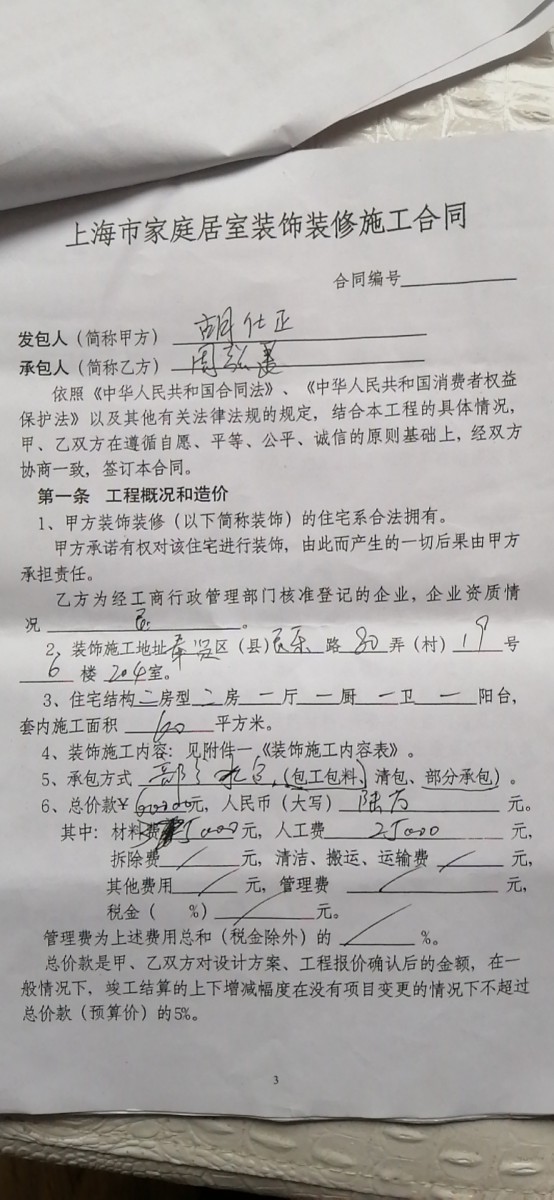 上海市家庭居室装饰装修施工合同
合同编号
发包人（简称甲方） 胡仕正
承包人（简称乙方） 周
依照《中华人民共和国合同法》、《中华人民共和国消费者权益
保护法》以及其他有关法律法规的规定，结合本工程的具体情况，
甲、乙双方在遵循自愿、平等、公平、诚信的原则基础上，经双方
协商一致，签订本合同。
第一条 工程概况和造价
1、甲方装饰装修（以下简称装饰）的住宅系合法拥有。
甲方承诺有权对该住宅进行装饰，由此而产生的一切后果由甲方
承担责任。
乙方为经工商行政管理部门核准登记的企业，企业资质情
况 。
2、装饰施工地址奉贤区（县）民乐路80弄（村）19号
6楼204室。
3、住宅结构二房型二房一厅一厨一卫一阳台，
套内施工面积60平方米。
4、装饰施工内容：见附件一《装饰施工内容表》。
5、承包方式 部分承包（包工包料、清包、部分承包）。
6、总价款¥60000元，人民币（大写）陆万元。
其中：材料费35000元，人工费25000元，
拆除费/元，清洁、搬运、运输费/元，
其他费用/元，管理费/元，
税金（ %）/元。
管理费为上述费用总和（税金除外）的/%。
总价款是甲、乙双方对设计方案、工程报价确认后的金额，在一
般情况下，竣工结算的上下增减幅度在没有项目变更的情况下不超过
总价款（预算价）的5%。
3